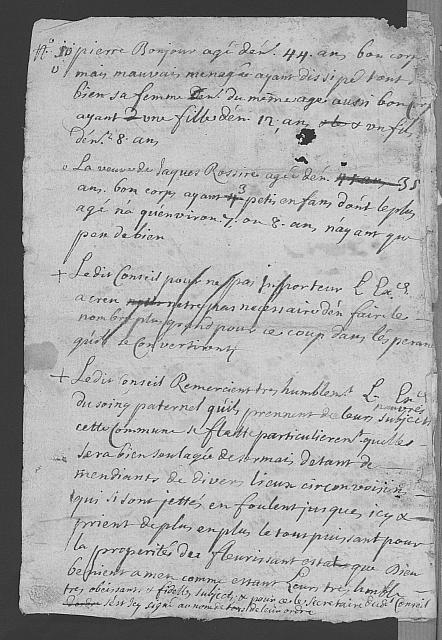 pierre Bonjour agé denn. 44. ans bon corps
mais mauvais menager ayant dissipé tout
bien sa femme du même age aussi bon corps
ayant une fille den 12. ans & un fils
den. 8. ans
La veuve de Jaques Rossire agée den. 35
ans. bon corps ayant 3 petis enfans dont le plus
agé n'a quenviron. 7. ou 8. ans nayant que
peu de bien
+ Ledit Conseil pour ne pas Importeur L. Ex.ces
a creu n'etre pas necessaire den faire le
nombre plus grand pour ce coup dans l'esperance
qu'ils se Convertiront
+ Ledit Conseil Remercient tres humblem.t L. Ex.ces
du soing paternel qu'ils prennent de leurs pauvres subjects
cette Commune se flatte particulierem.t quelles
sera bien soulagée desormais de tant de
mendiants de divers lieux circonvoisins
qui si sont jettés en foulent jusques icy &
prient de plus en plus le tout puissant pour
la properité de fleurissant estat que Dieu
benient amen comme estant Leurs tres humbles
tres obeissants & fidelles subjects, & pour ce le Secretaire dud. Conseil
s'est icy signé au nom de tous de leur ordre